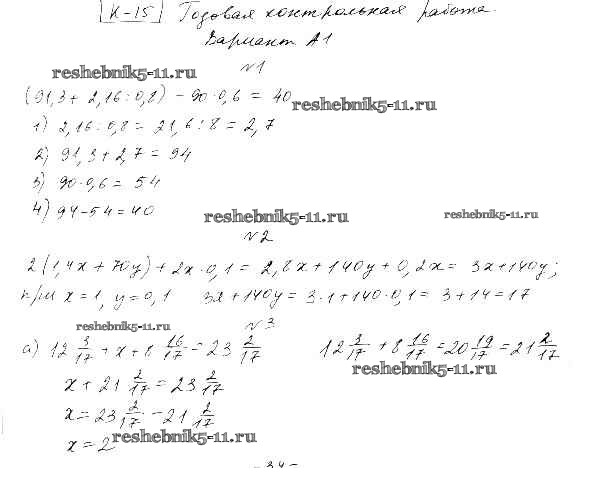 К-15 Годовая контрольная работа.
Вариант А1
reshebnik5-11.ru
№1
(91,3 + 2,16 : 0,8) - 90·0,6 = 40
reshebnik5-11.ru
1) 2,16 : 0,8 = 21,6 : 8 = 2,7
2) 91,3 + 2,7 = 94
3) 90·0,6 = 54
4) 94 - 54 = 40
reshebnik5-11.ru reshebnik5-11.ru
№2
2(1,4x + 70y) + 2x·0,1 = 2,8x + 140y + 0,2x = 3x + 140y;
при x = 1, y = 0,1 3x + 140y = 3·1 + 140·0,1 = 3 + 14 = 17
reshebnik5-11.ru
№3
а) 12 3/17 + x + 8 16/17 = 23 2/17 12 3/17 + 8 16/17 = 20 19/17 = 21 2/17
reshebnik5-11.ru
x + 21 2/17 = 23 2/17
x = 23 2/17 - 21 2/17
x = 2
reshebnik5-11.ru
- 34 -